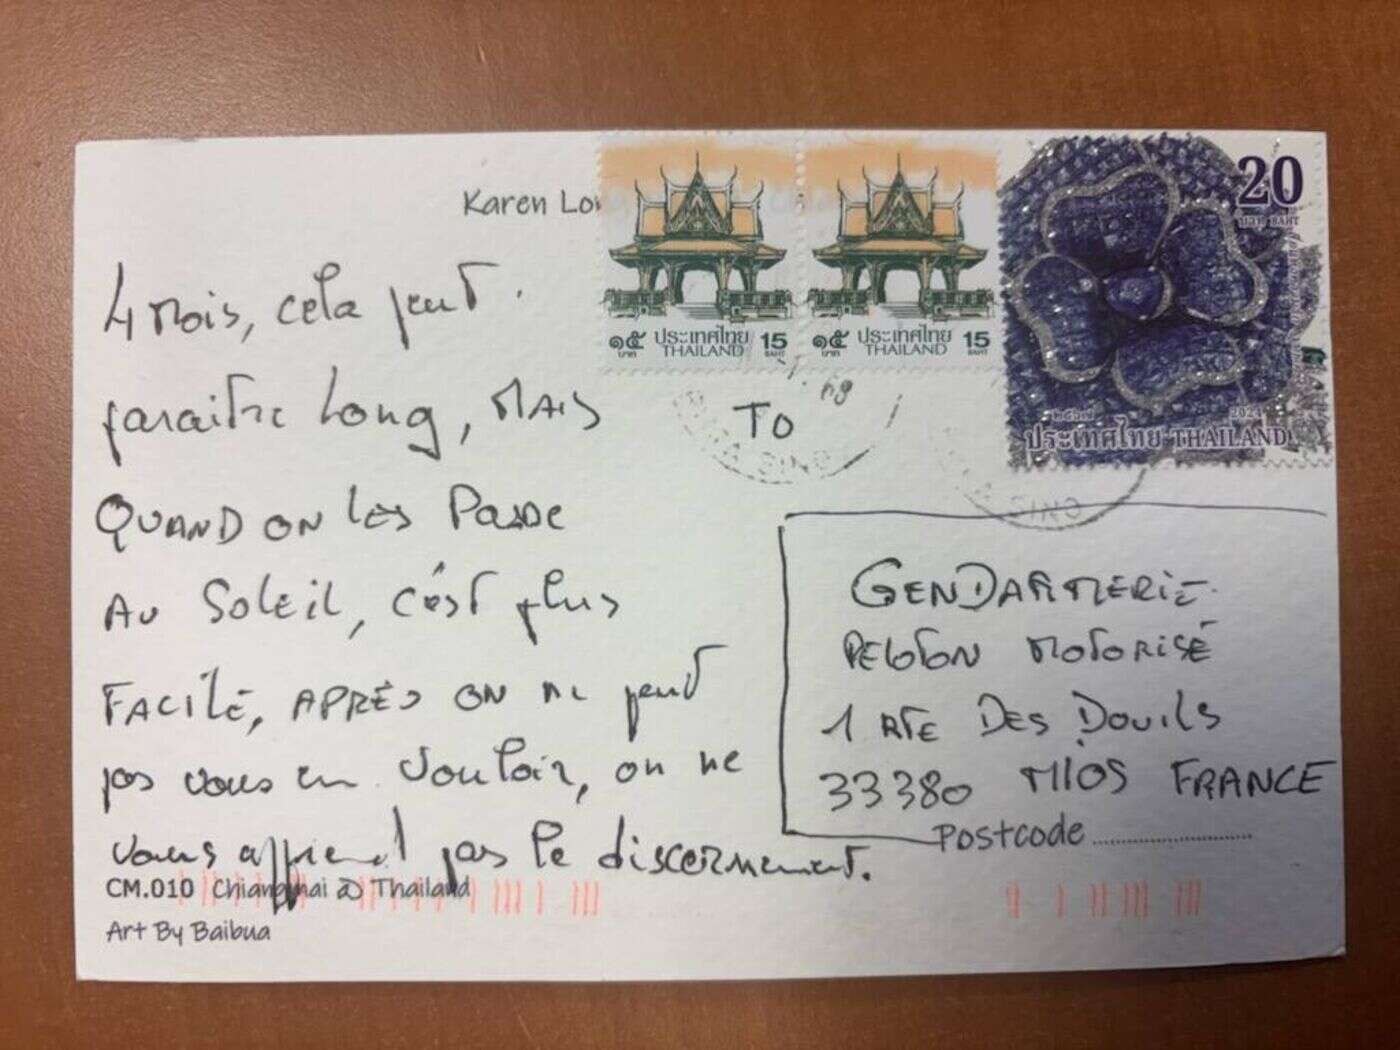 Karen Lon
๑๕ ประเทศไทย 15
บาท THAILAND BAHT
๑๕ ประเทศไทย 15
บาท THAILAND BAHT
20
บาท BAHT
๒๕๖๗ 2024
ประเทศไทย THAILAND
4 mois, cela peut
paraitre long, MAIS
QUAND ON les Passe
AU SOLEIL, c'est plus
FACILE, APRÈS ON ne peut
pas vous en vouloir, on ne
vous apprend pas le discernement.
TO
GENDARMERIE
PELOTON MOTORISÉ
1 RTE DES DOUILS
33380 MIOS FRANCE
Postcode
CM.010 Chiangmai @ Thailand
Art By Baibua